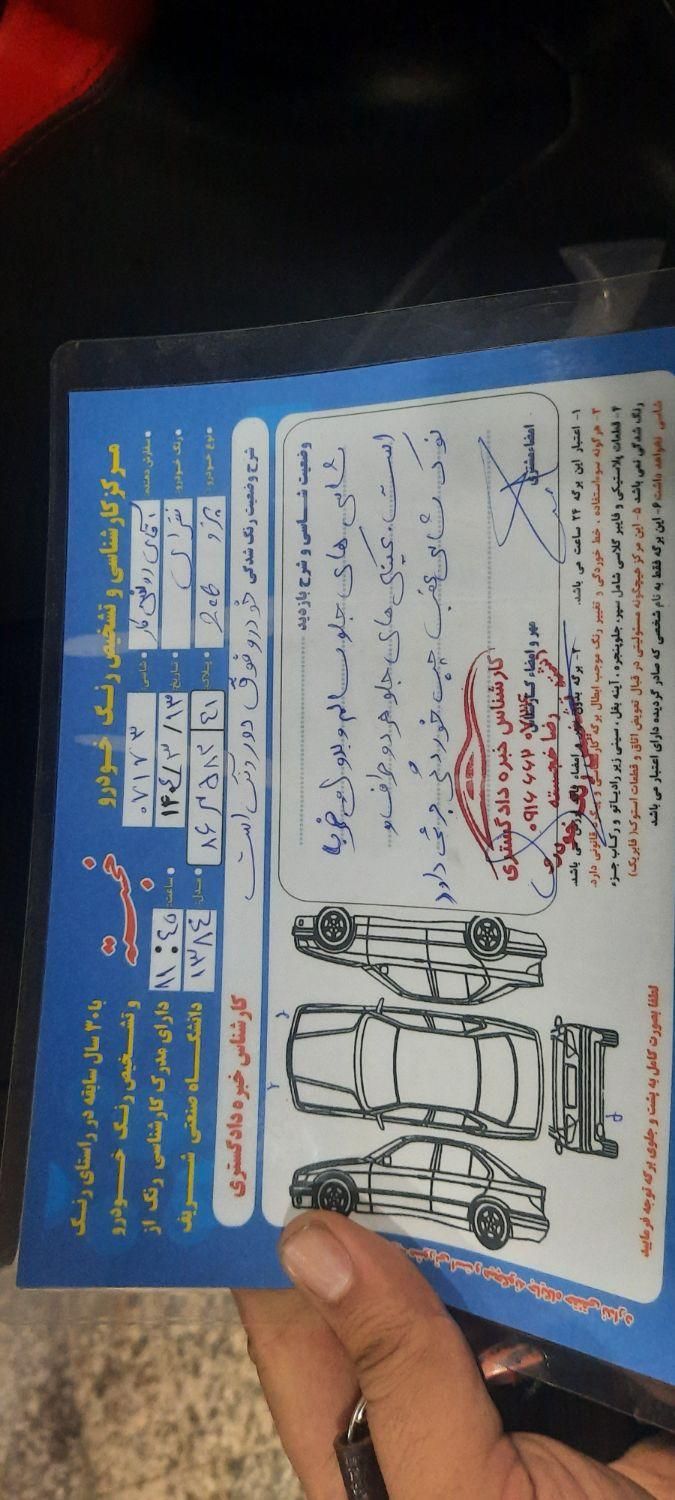 مرکز کارشناسی و تشخیص رنگ خودرو
خجسته
با ۳۰ سال سابقه در راستای رنگ
و تشخیص رنگ خودرو
دارای مدرک کارشناسی رنگ از
دانشگاه صنعتی شریف
سفارش دهنده: آقای
شاسی: ۰۷۱۲۳
رنگ خودرو:
تاریخ: ۱۴۰۴/۳/۱۳
ساعت: ۱۱:۴۵
نوع خودرو: پژو 206
پلاک:
مدل: ۱۳۸۴
شرح وضعیت رنگ شدگی خودرو فوق دور رنگ است
کارشناس خبره دادگستری
وضعیت شاسی و شرح بازدید
شاسی های جلو سالم و بدون ضربه
است. عینکی های جلو هر دو طرف و
نوک شاسی عقب چپ خوردگی جزئی دارد
امضاء مشتری
مهر و امضاء کارشناس
کارشناس خبره دادگستری
رضا خجسته
۱- اعتبار این برگه ۲۴ ساعت می باشد.
۲- برگه بدون مهر و امضاء
۳- هرگونه سوء استفاده ، خط خوردگی و تغییر رنگ موجب ابطال برگه کارشناسی و پیگرد قانونی دارد.
۴- قطعات پلاستیکی و فایبر گلاسی شامل سپر، جلوپنجره ، آینه بغل ، سینی زیر رادیاتور و رکاب جزء
رنگ شدگی نمی باشد ۵- این مرکز هیچگونه مسئولیتی در قبال تعویض اتاق و قطعات استوک( فابریک)
شاسی نخواهد داشت ۶- این برگه فقط به نام شخصی که صادر گردیده دارای اعتبار می باشد
لطفا بصورت کامل به پشت و جلوی برگه توجه فرمایید
است و هیچگونه جایگاه حقوقی ندارد